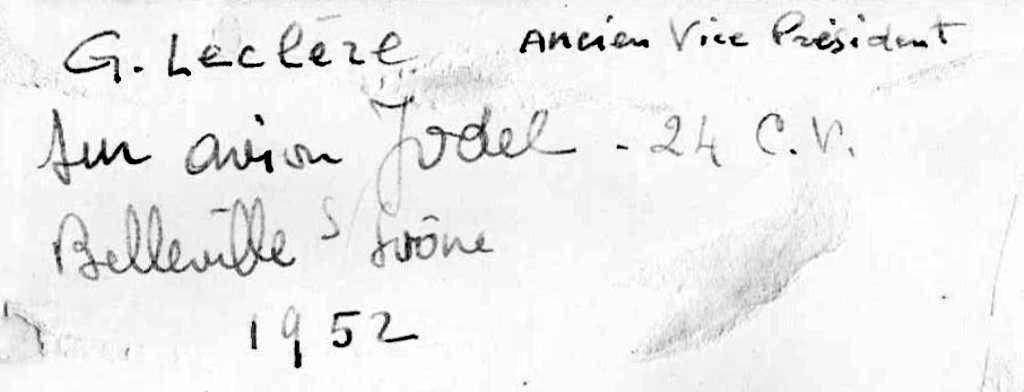 G. Leclère Ancien Vice Président
sur avion Jodel - 24 C.V.
Belleville s Saône
1952